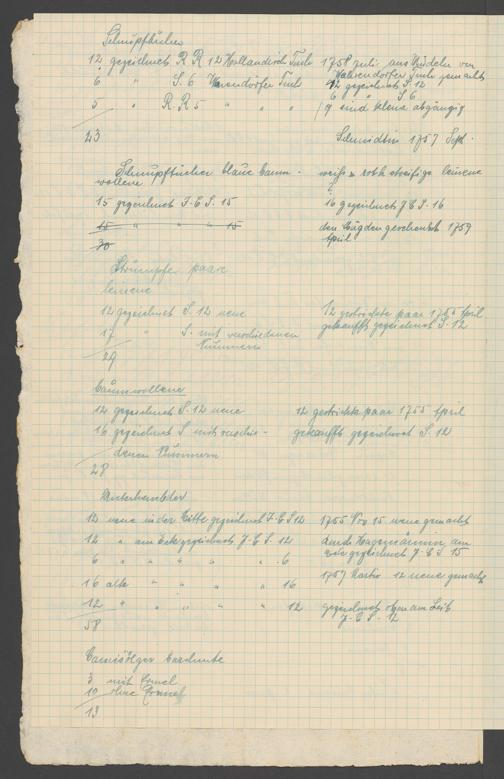 Schnupftücher
12 gezeichnet R R 12 Hollandisch Tuch
6 " S. 6 Warendörfer Tuch
5 " R. R 5 " " "
23
1758 Juli aus Stücken von
Warendörfer Tuch gemacht
12 gezeichnet S 12
6 " S 6
/9 sind kleine abgängig
Schmidtin 1757 Sept.
Schnupftücher blaue baum-
wollene
15 gezeichnet J. E S. 15
15 " " " " 15
30
weiß & roth streifige leinene
16 gezeichnet J E S. 16
den Mägden geschenkt 1759
April
Strümpfe paare
leinene
12 gezeichnet S. 12 neue
17 " S. mit verschiedenen
Nummern
29
12 gestrickte paar 1755 April
gekaufft gezeichnet S. 12
Baumwollene
12 gezeichnet S. 12 neue
16 gezeichnet S mit verschie-
denen Nummern
28
12 gestrickte paar 1755 April
gekaufft gezeichnet S. 12
Unterhemder
12 neue in der Mitte gezeichnet J. E S 12
12 " am Eck gezeichnet J. E S. 12
6 " " " " " 6
16 alte " " " " 16
12 " " " " " 12
58
1755 Nro 15 neue gemacht
durch am
gezeichnet J. E S 15
1757 12 neue gemacht
gezeichnet oben am Leib
J. E S. 12
3 mit Ermel
10 ohne Ermel
13